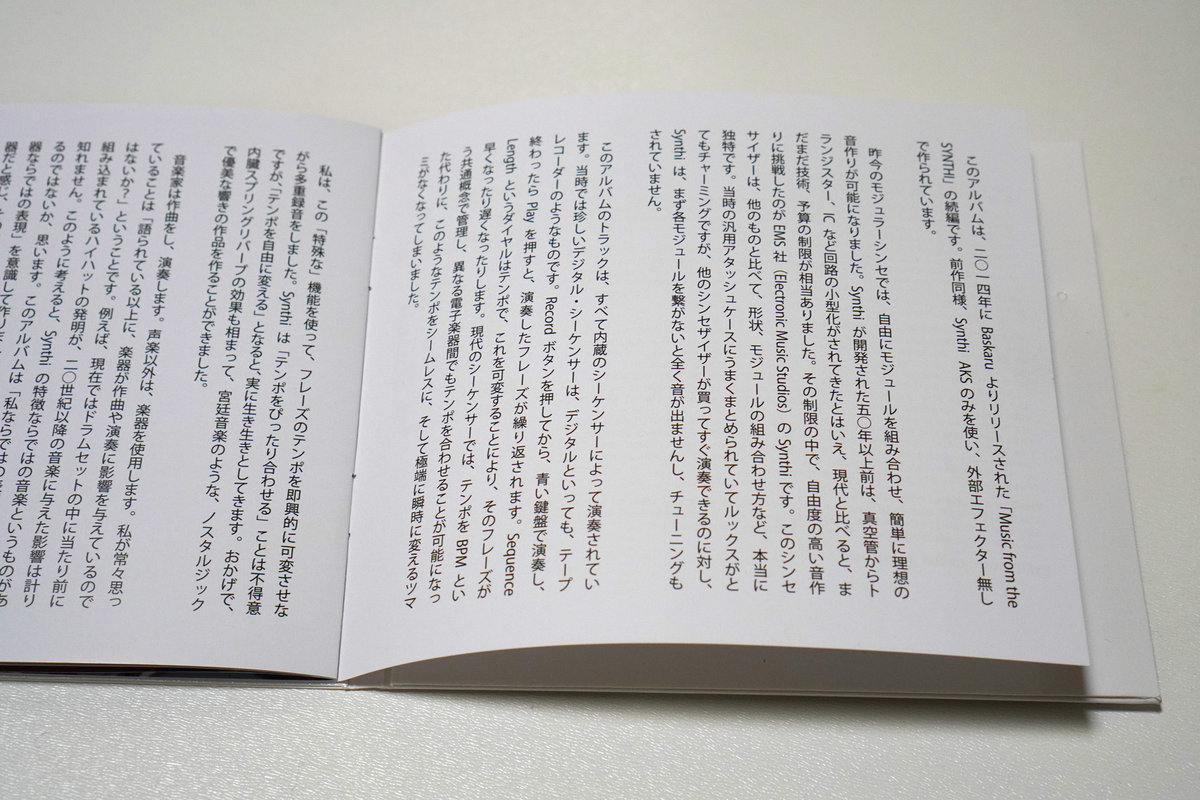 このアルバムは、二〇一四年に Baskaru よりリリースされた「Music from the
SYNTHI」の続編です。前作同様、Synthi AKS のみを使い、外部エフェクター無し
で作られています。
昨今のモジュラーシンセでは、自由にモジュールを組み合わせ、簡単に理想の
音作りが可能になりました。Synthi が開発された五〇年以上前は、真空管からト
ランジスター、IC など回路の小型化がされてきたとはいえ、現代と比べると、ま
だまだ技術、予算の制限が相当ありました。その制限の中で、自由度の高い音作
りに挑戦したのが EMS 社（Electronic Music Studios）の Synthi です。このシンセ
サイザーは、他のものと比べて、形状、モジュールの組み合わせ方など、本当に
独特です。当時の汎用アタッシュケースにうまくまとめられていてルックスがと
てもチャーミングですが、他のシンセザイザーが買ってすぐ演奏できるのに対し、
Synthi は、まず各モジュールを繋がないと全く音が出ませんし、チューニングも
されていません。
このアルバムのトラックは、すべて内蔵のシーケンサーによって演奏されてい
ます。当時では珍しいデジタル・シーケンサーは、デジタルといっても、テープ
レコーダーのようなものです。Record ボタンを押してから、青い鍵盤で演奏し、
終わったら Play を押すと、演奏したフレーズが繰り返されます。Sequence
Length というダイヤルはテンポで、これを可変することにより、そのフレーズが
早くなったり遅くなったりします。現代のシーケンサーでは、テンポを BPM とい
う共通概念で管理し、異なる電子楽器間でもテンポを合わせることが可能になっ
た代わりに、このようなテンポをシームレスに、そして極端に瞬時に変えるツマ
ミがなくなってしまいました。
私は、この「特殊な」機能を使って、フレーズのテンポを即興的に可変させな
がら多重録音をしました。Synthi は「テンポをぴったり合わせる」ことは不得意
ですが、「テンポを自由に変える」となると、実に生き生きとしてきます。おかげで、
内臓スプリングリバーブの効果も相まって、宮廷音楽のような、ノスタルジック
で優美な響きの作品を作ることができました。
音楽家は作曲をし、演奏します。声楽以外は、楽器を使用します。私が常々思っ
ていることは「語られている以上に、楽器が作曲や演奏に影響を与えているので
はないか？」ということです。例えば、現在ではドラムセットの中に当たり前に
組み込まれているハイハットの発明が、二〇世紀以降の音楽に与えた影響は計り
知れません。このように考えると、Synthi の特徴ならではの音楽というものがあ
るのではないか、思います。このアルバムは「私ならではの
器ならではの表現」を意識して作りま
器だと感じ、